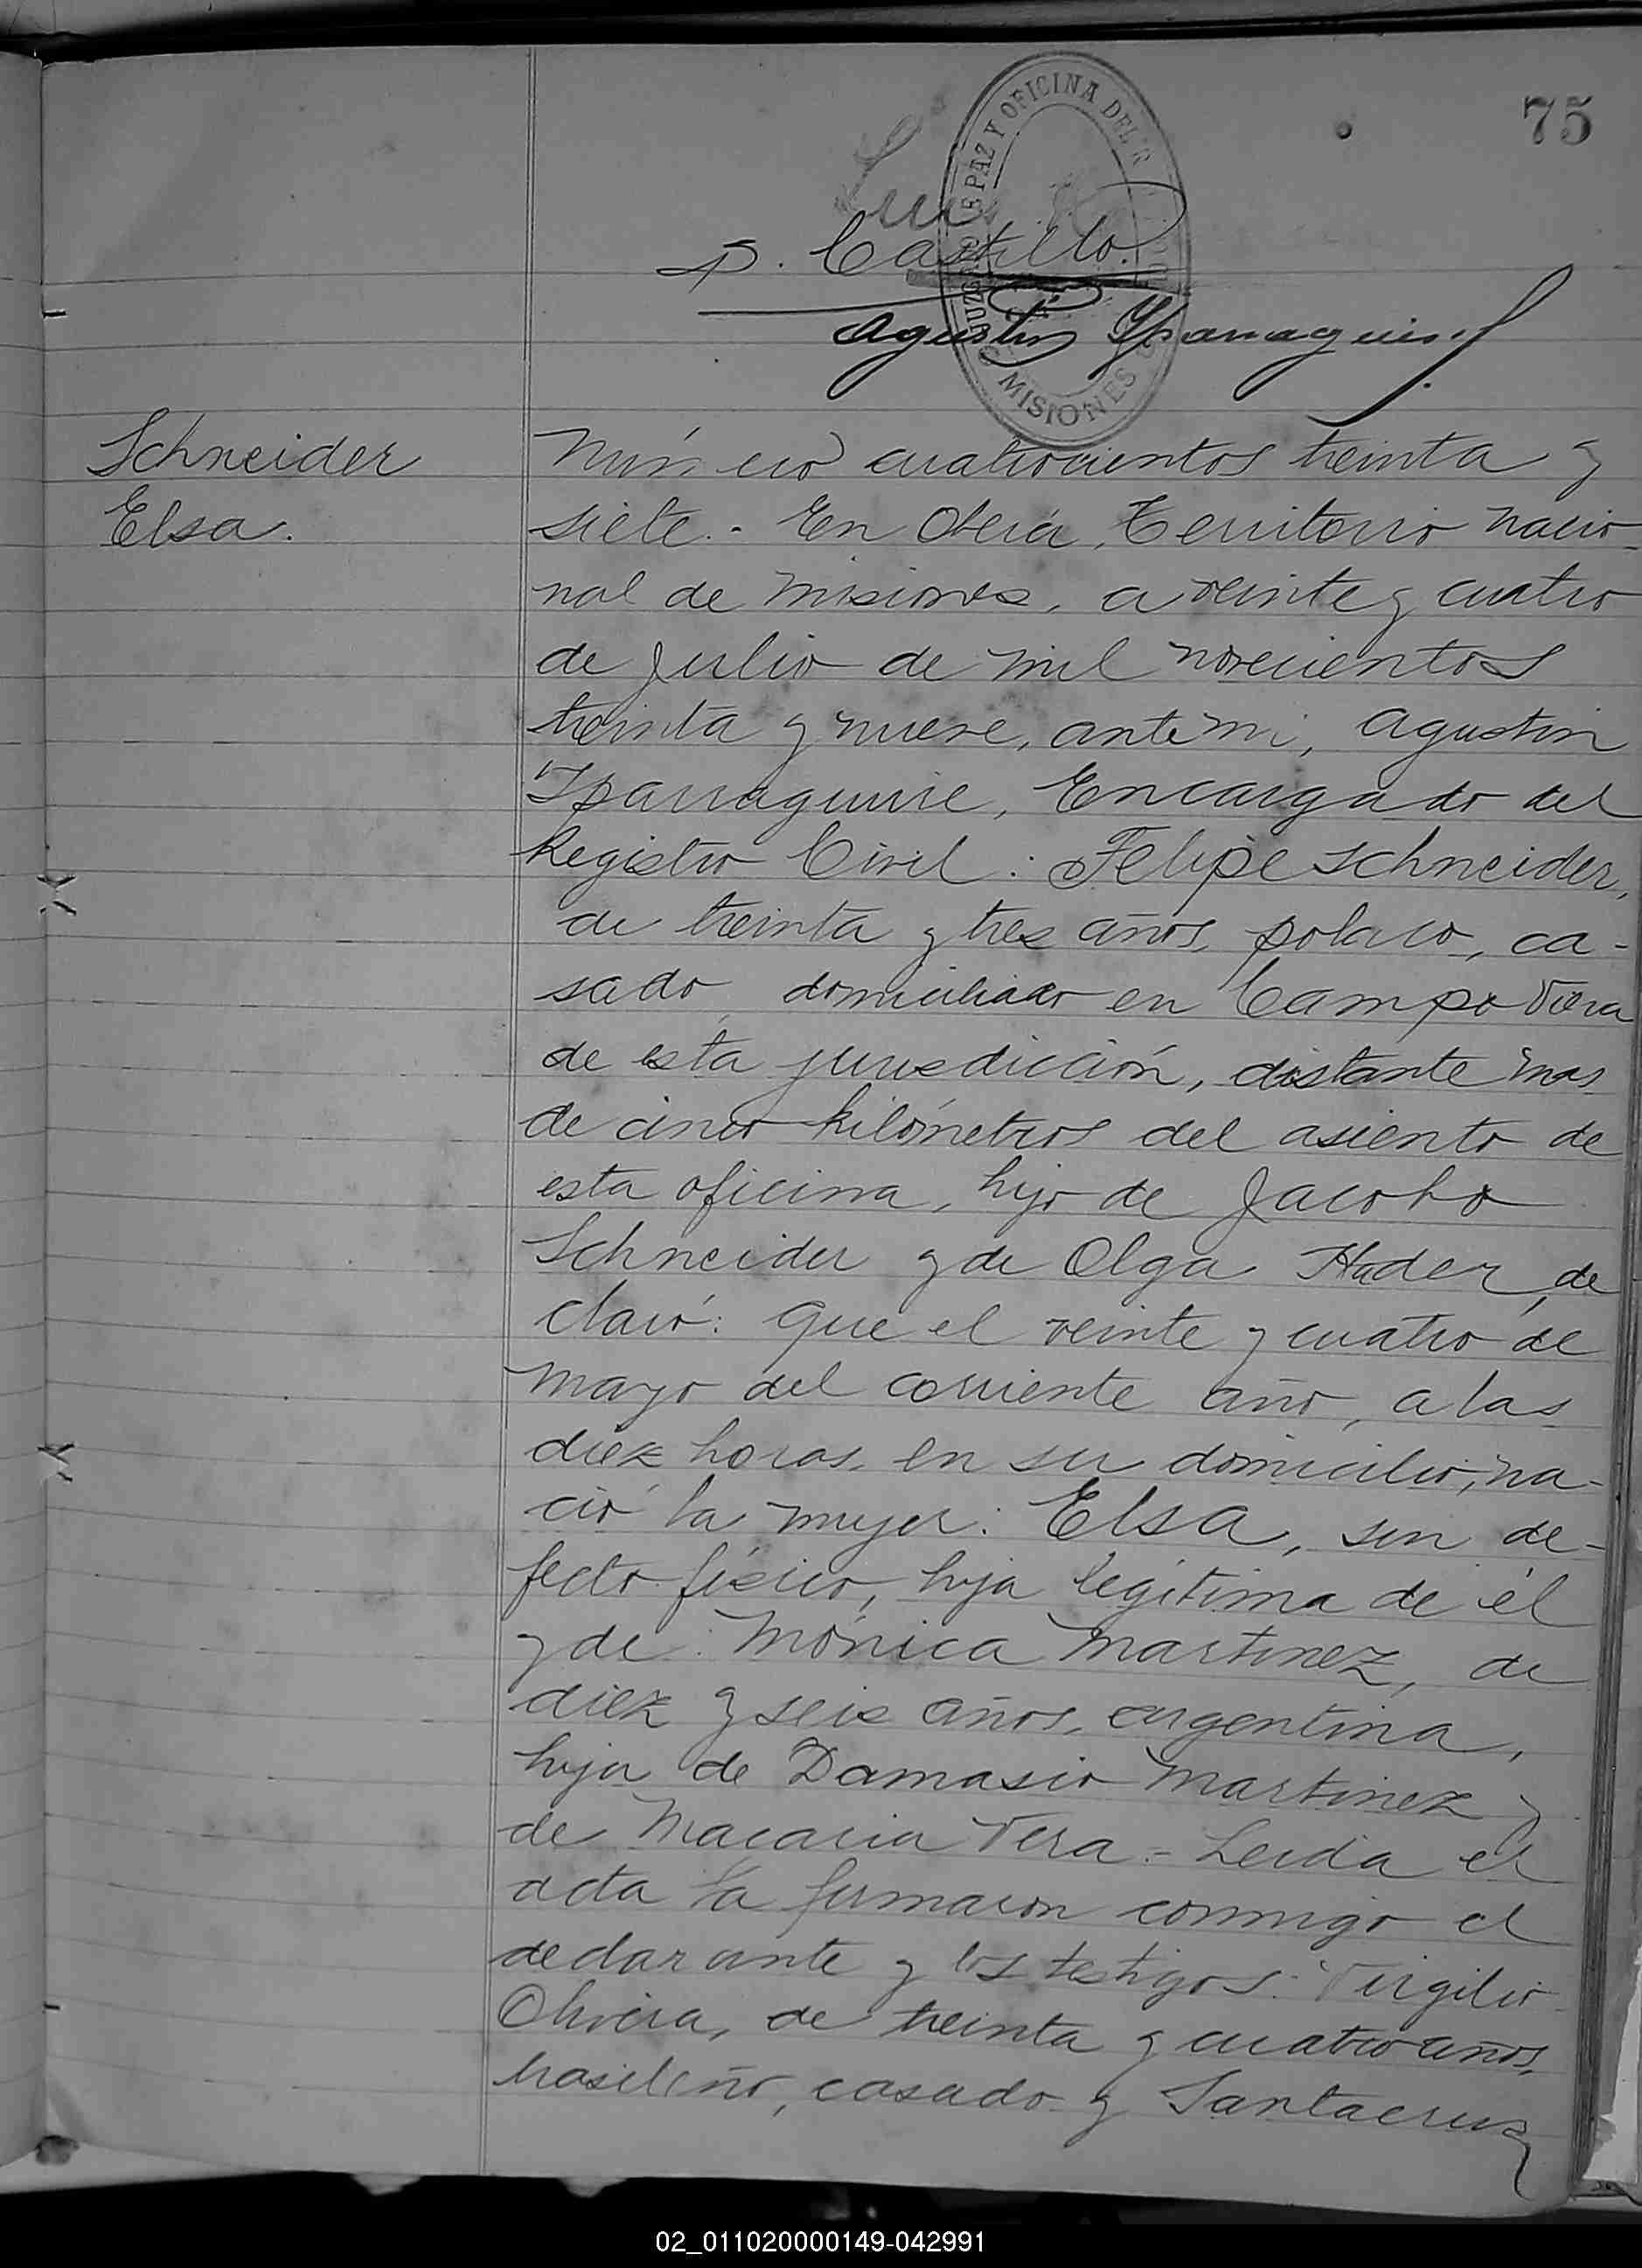 75
JUZGADO DE PAZ Y OFICINA DEL R
MISIONES
P. Castillo.
Agustín Yparraguirre
Schneider
Elsa.
Número cuatrocientos treinta y
siete.- En Oberá, Territorio Nacio-
nal de Misiones, a veinte y cuatro
de Julio de mil novecientos
treinta y nueve, ante mi, Agustin
Yparraguirre, Encargado del
Registro Civil: Felipe Schneider,
de treinta y tres años, polaco, ca-
sado, domiciliado en Campo Viera
de esta jurisdicción, distante mas
de cinco kilómetros del asiento de
esta oficina, hijo de Jacobo
Schneider y de Olga Hader, de
claró: que el veinte y cuatro de
Mayo del corriente año, a las
diez horas, en su domicilio, na-
ció la mujer: Elsa, sin de-
fecto físico, hija legítima de él
y de: Mónica Martinez, de
diez y seis años, argentina,
hija de Damasio Martinez y
de Macaria Vera.- Leida el
acta la firmaron conmigo el
declarante y los testigos: Virgilio
Olivera, de treinta y cuatro años,
brasileño, casado y Santacruz
02_011020000149-042991